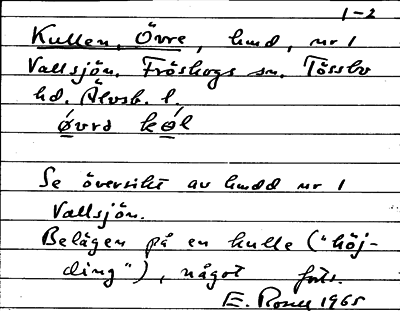 1-2
Kullen, Övre, hmd, nr 1
Vallsjön. Fröskogs sn. Tössbo
hd. Älvsb. l.
ǿvrə kǿl
Se översikt av hmdd nr 1
Vallsjön.
Belägen på en kulle ("höj-
ding"), något forts.
E. Rosell 1965